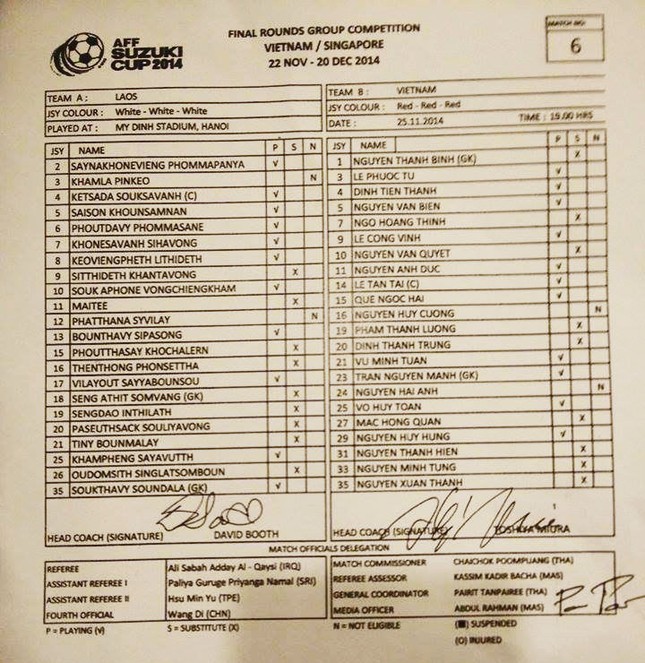 AFF
SUZUKI
CUP 2014
FINAL ROUNDS GROUP COMPETITION
VIETNAM / SINGAPORE
22 NOV - 20 DEC 2014
MATCH NO:
6
TEAM A : LAOS
JSY COLOUR : White - White - White
PLAYED AT : MY DINH STADIUM, HANOI
TEAM B : VIETNAM
JSY COLOUR : Red - Red - Red
DATE : 25.11.2014 TIME : 19.00 HRS
JSY NAME P S N
2 SAYNAKHONEVIENG PHOMMAPANYA √
3 KHAMLA PINKEO N
4 KETSADA SOUKSAVANH (C) √
5 SAISON KHOUNSAMNAN √
6 PHOUTDAVY PHOMMASANE √
7 KHONESAVANH SIHAVONG √
8 KEOVIENGPHETH LITHIDETH √
9 SITTHIDETH KHANTAVONG X
10 SOUK APHONE VONGCHIENGKHAM √
11 MAITEE X
12 PHATTHANA SYVILAY N
13 BOUNTHAVY SIPASONG √
15 PHOUTTHASAY KHOCHALERN X
16 THENTHONG PHONSETTHA X
17 VILAYOUT SAYYABOUNSOU √
18 SENG ATHIT SOMVANG (GK) X
19 SENGDAO INTHILATH X
20 PASEUTHSACK SOULIYAVONG X
21 TINY BOUNMALAY X
25 KHAMPHENG SAYAVUTTH √
26 OUDOMSITH SINGLATSOMBOUN X
35 SOUKTHAVY SOUNDALA (GK) √
HEAD COACH (SIGNATURE) DAVID BOOTH
JSY NAME P S N
1 NGUYEN THANH BINH (GK) X
3 LE PHUOC TU √
4 DINH TIEN THANH √
5 NGUYEN VAN BIEN √
7 NGO HOANG THINH X
9 LE CONG VINH √
10 NGUYEN VAN QUYET X
11 NGUYEN ANH DUC √
14 LE TAN TAI (C) √
15 QUE NGOC HAI √
16 NGUYEN HUY CUONG N
19 PHAM THANH LUONG X
20 DINH THANH TRUNG X
21 VU MINH TUAN √
23 TRAN NGUYEN MANH (GK) √
24 NGUYEN HAI ANH N
25 VO HUY TOAN √
27 MAC HONG QUAN X
29 NGUYEN HUY HUNG √
31 NGUYEN THANH HIEN X
33 NGUYEN MINH TUNG X
35 NGUYEN XUAN THANH X
HEAD COACH (SIGNATURE) TOSHIYA MIURA
MATCH OFFICIALS DELEGATION
REFEREE Ali Sabah Adday Al - Qaysi (IRQ)
ASSISTANT REFEREE I Paliya Guruge Priyanga Namal (SRI)
ASSISTANT REFEREE II Hsu Min Yu (TPE)
FOURTH OFFICIAL Wang Di (CHN)
MATCH COMMISSIONER CHAICHOK POOMPUANG (THA)
REFEREE ASSESSOR KASSIM KADIR BACHA (MAS)
GENERAL COORDINATOR PAIRIT TANPAIREE (THA)
MEDIA OFFICER ABDUL RAHMAN (MAS)
P = PLAYING (√) S = SUBSTITUTE (X) N = NOT ELIGIBLE (■) SUSPENDED
(O) INJURED